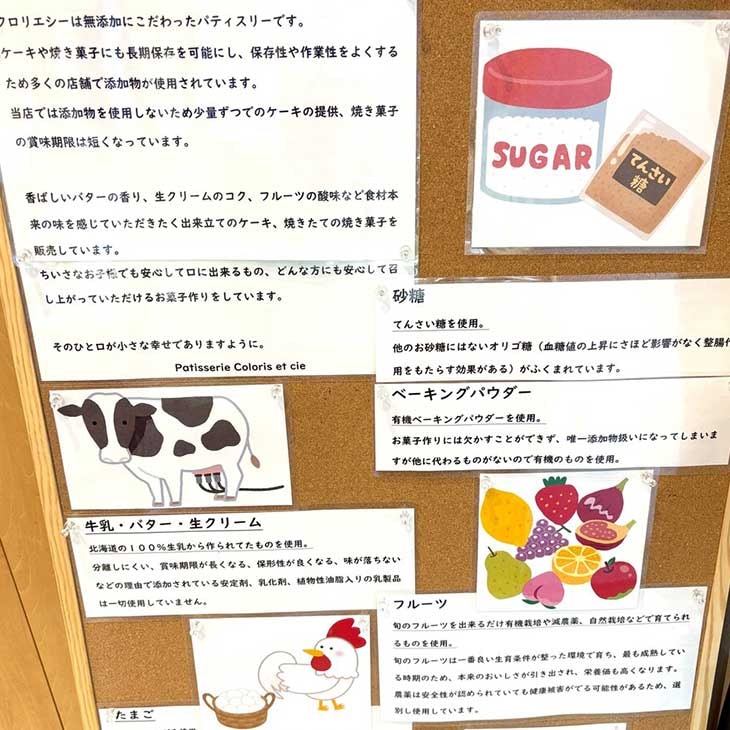 フロリエシーは無添加にこだわったパティスリーです。
ケーキや焼き菓子にも長期保存を可能にし、保存性や作業性をよくする
ため多くの店舗で添加物が使用されています。
当店では添加物を使用しないため少量ずつでのケーキの提供、焼き菓子
の賞味期限は短くなっています。
香ばしいバターの香り、生クリームのコク、フルーツの酸味など食材本
来の味を感じていただきたく出来立てのケーキ、焼きたての焼き菓子を
販売しています。
ちいさなお子様でも安心して口に出来るもの、どんな方にも安心して召
し上がっていただけるお菓子作りをしています。
そのひと口が小さな幸せでありますように。
Patisserie Coloris et cie
SUGAR
てんさい
糖
砂糖
てんさい糖を使用。
他のお砂糖にはないオリゴ糖（血糖値の上昇にさほど影響がなく整腸作
用をもたらす効果がある）がふくまれています。
ベーキングパウダー
有機ベーキングパウダーを使用。
お菓子作りには欠かすことができず、唯一添加物扱いになってしまいま
すが他に代わるものがないので有機のものを使用。
牛乳・バター・生クリーム
北海道の１００％生乳から作られてたものを使用。
分離しにくい、賞味期限が長くなる、保形性が良くなる、味が落ちない
などの理由で添加されている安定剤、乳化剤、植物性油脂入りの乳製品
は一切使用していません。
フルーツ
旬のフルーツを出来るだけ有機栽培や減農薬、自然栽培などで育てられ
るものを使用。
旬のフルーツは一番良い生育条件が整った環境で育ち、最も成熟してい
る時期のため、本来のおいしさが引き出され、栄養価も高くなります。
農薬は安全性が認められていても健康被害がでる可能性があるため、選
別し使用しています。
たまご